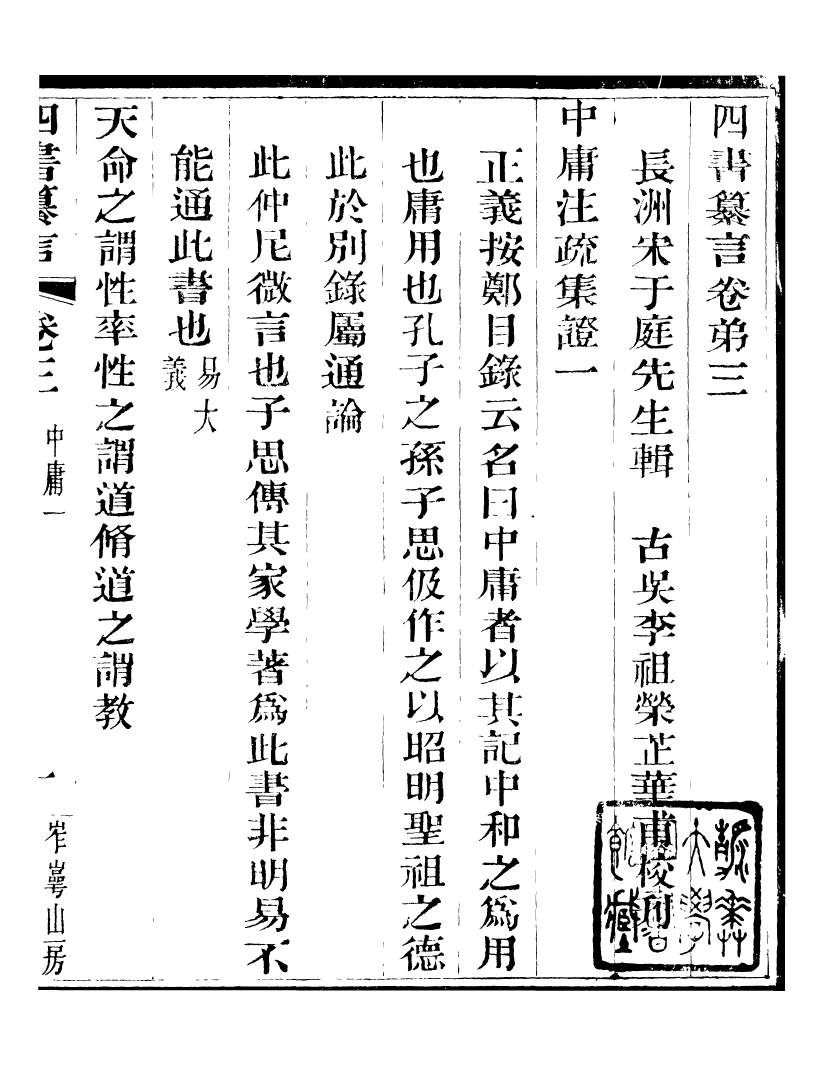 四書纂言卷弟三
長洲宋于庭先生輯　古吳李祖榮芷華甫校刊
中庸注疏集證一
正義按鄭目錄云名曰中庸者以其記中和之爲用
也庸用也孔子之孫子思伋作之以昭明聖祖之德
此於別錄屬通論
此仲尼微言也子思傳其家學著爲此書非明易不
能通此書也易大義
天命之謂性率性之謂道脩道之謂教
四書纂言　卷三　中庸一　一　岝崿山房